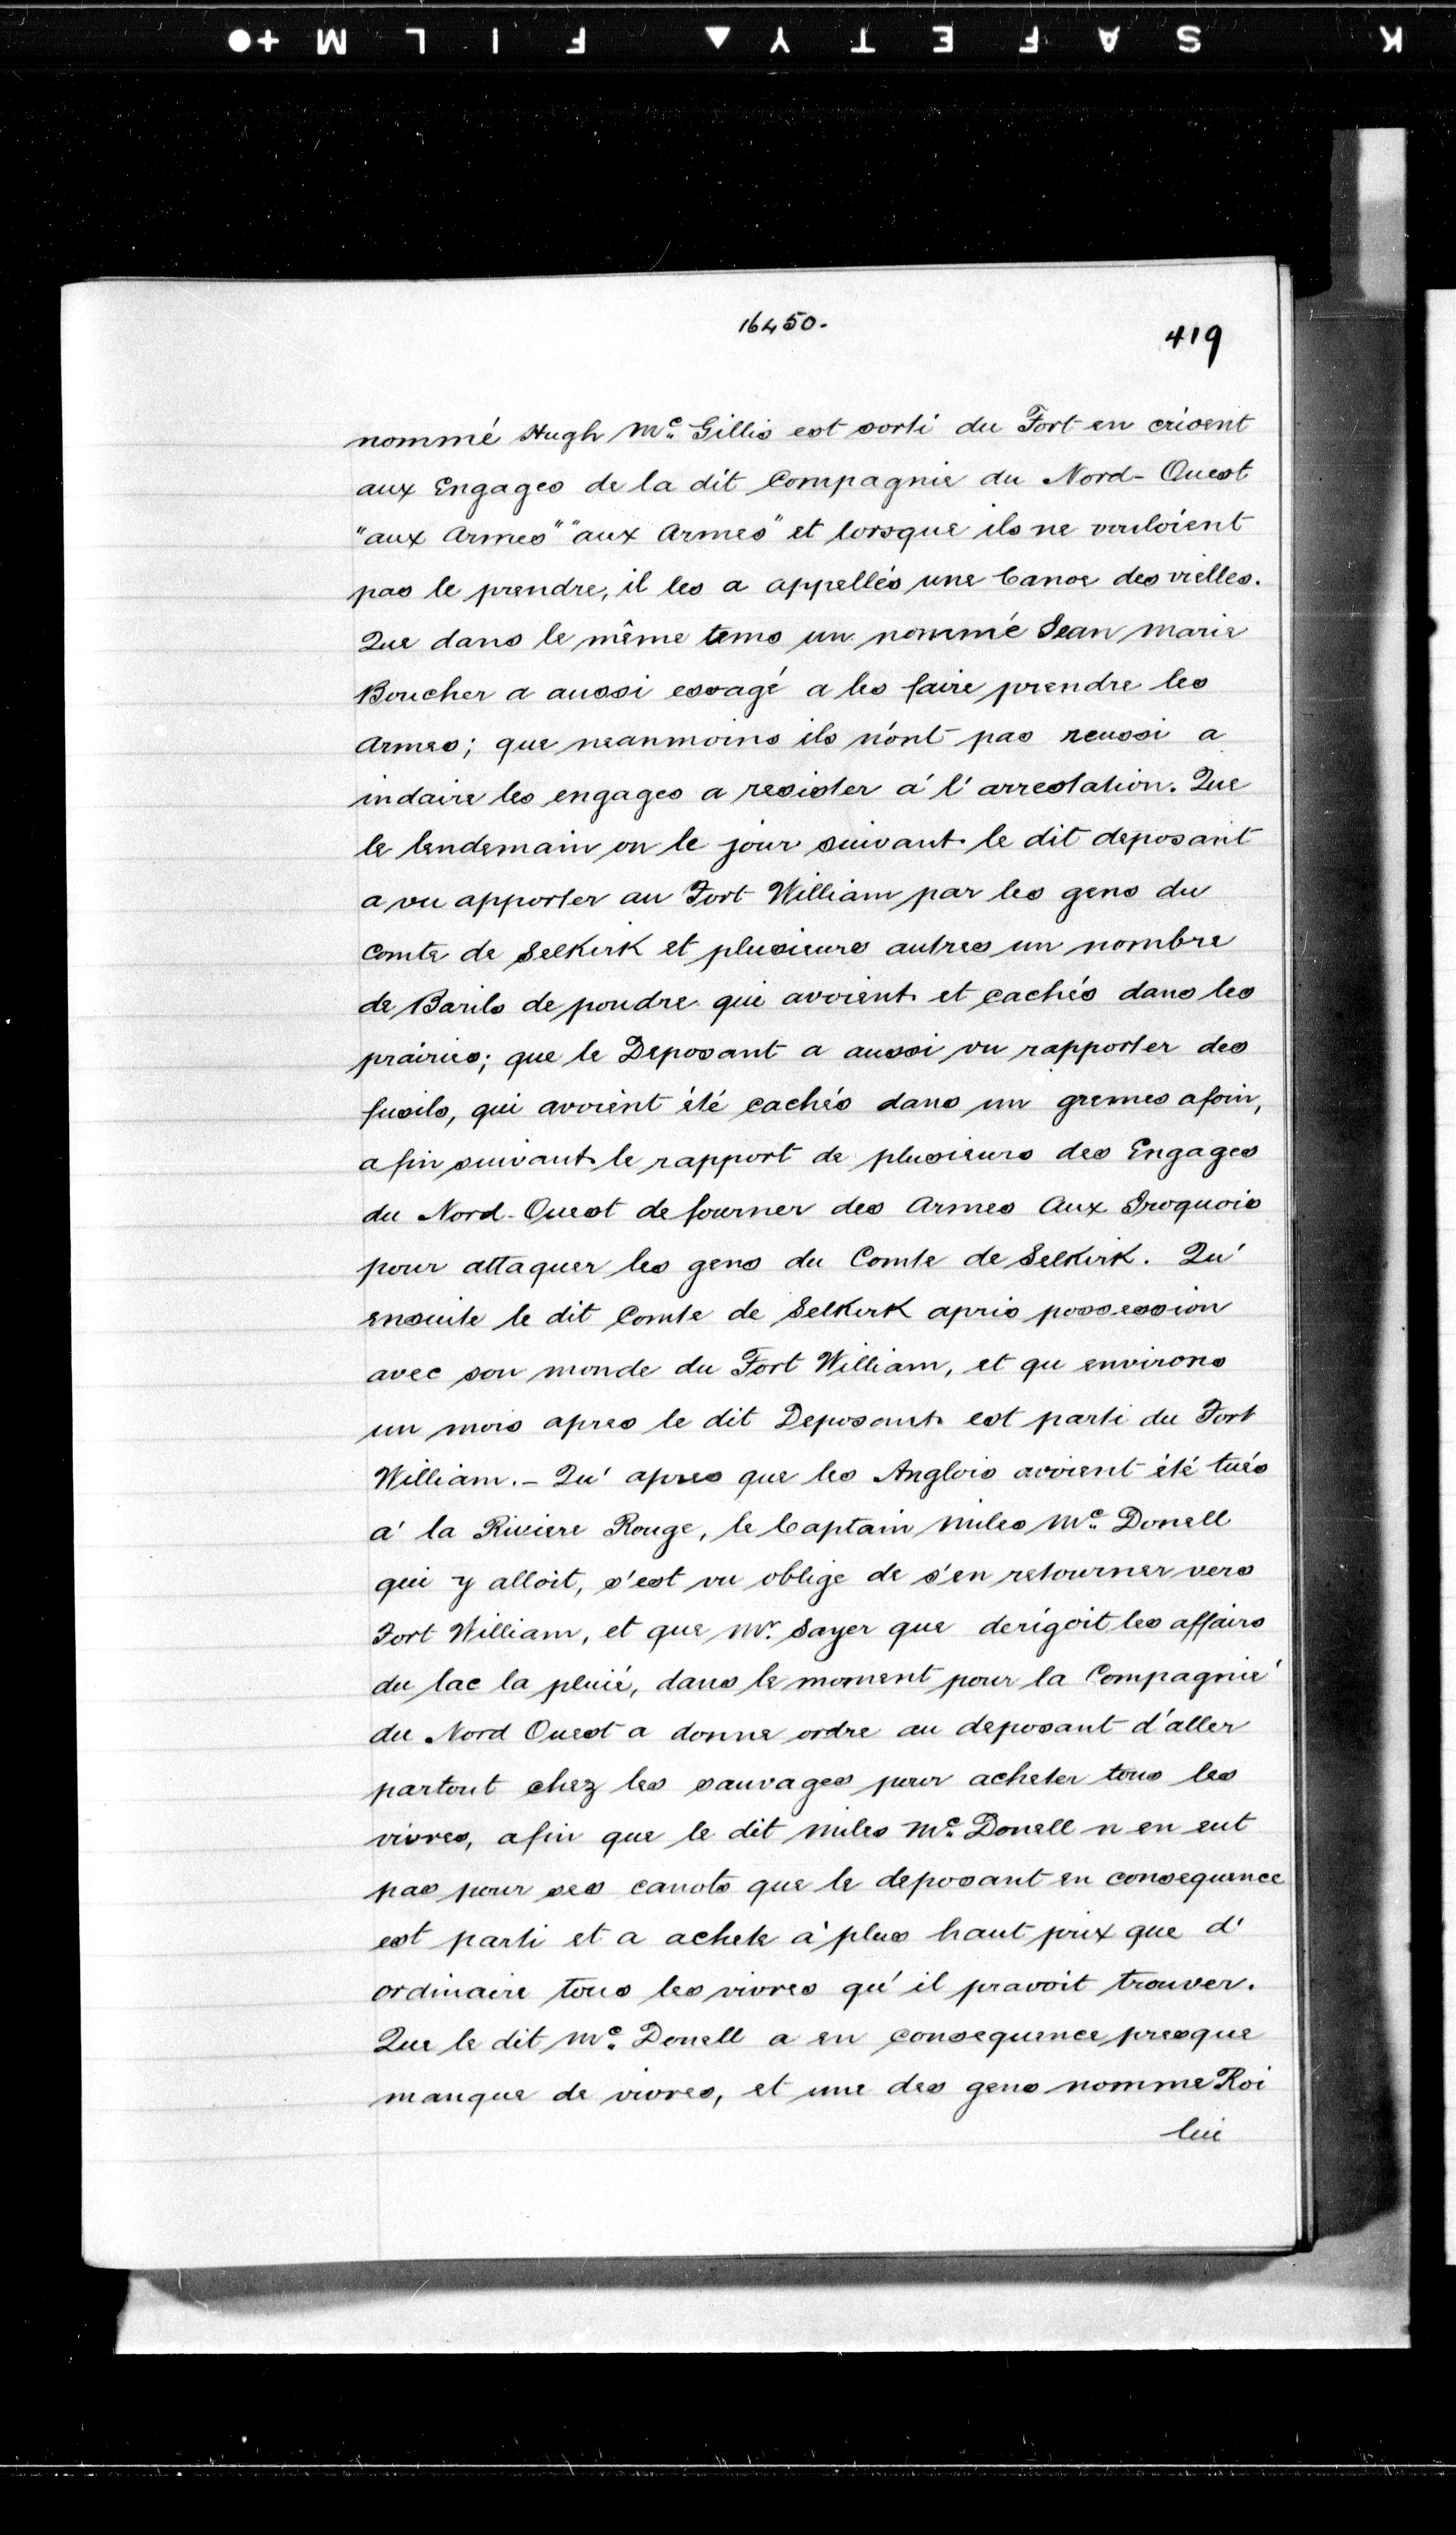 K S A F E T Y ▲ F I L M + ●
16450.
419
nommé Hugh Mc. Gillis est sorti du Fort en crioent
aux Engages de la dit Compagnie du Nord-Ouest
"aux Armes" "aux Armes" et lorsque ils ne vouloient
pas le prendre, il les a appellés une Canoe des vielles.
Que dans le même tems un nommé Jean Marie
Boucher a aussi essagé a les faire prendre les
Armes; que neanmoins ils n'ont pas reussi a
indaire les engages a resister á l' arrestation. Que
le lendemain on le jour suivant le dit deposant
a vu apporter au Fort William par les gens du
Comte de Selkirk et plusieurs autres un nombre
de Barils de poudre qui avoient et cachés dans les
prairies; que le Deposant a aussi vu rapporter des
fusils, qui avoient été cachés dans un gremes afoin,
afin suivant le rapport de plusieurs des Engages
du Nord-Ouest de fourner des Armes Aux Iroquois
pour attaquer les gens du Comte de Selkirk. Qu'
ensuite le dit Comte de Selkirk apris possession
avec son monde du Fort William, et qu environs
un mois apres le dit Deposant est parti du Fort
William. - Qu' apres que les Anglois avoient été tués
a' la Riviere Rouge, le Captain Miles Mc. Donell
qui y alloit, s'est vu oblige de s'en retourner vers
Fort William, et que Mr. Sayer que derigoit les affairs
du lac la pluié, dans le moment pour la Compagnie'
du Nord Ouest a donne ordre au deposant d'aller
partout chez les sauvages pour acheter tous les
vivres, afin que le dit Miles Mc. Donell n en eut
pas pour ses canots que le deposant en consequence
est parti et a achete a' plus haut prix que d'
ordinaire tous les vivres qu' il pravoit trouver.
Que le dit Mc. Donell a en consequence presque
manque de vivres, et une des gens nomme Roi
lui